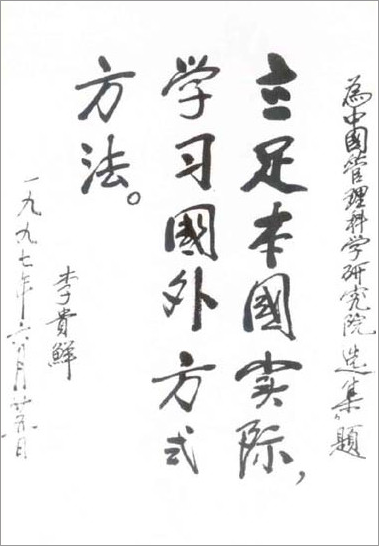 為中國管理科学研究院选集题
立足本國实际，
学习國外方式
方法。
李貴鮮
一九九七年六月廿五日